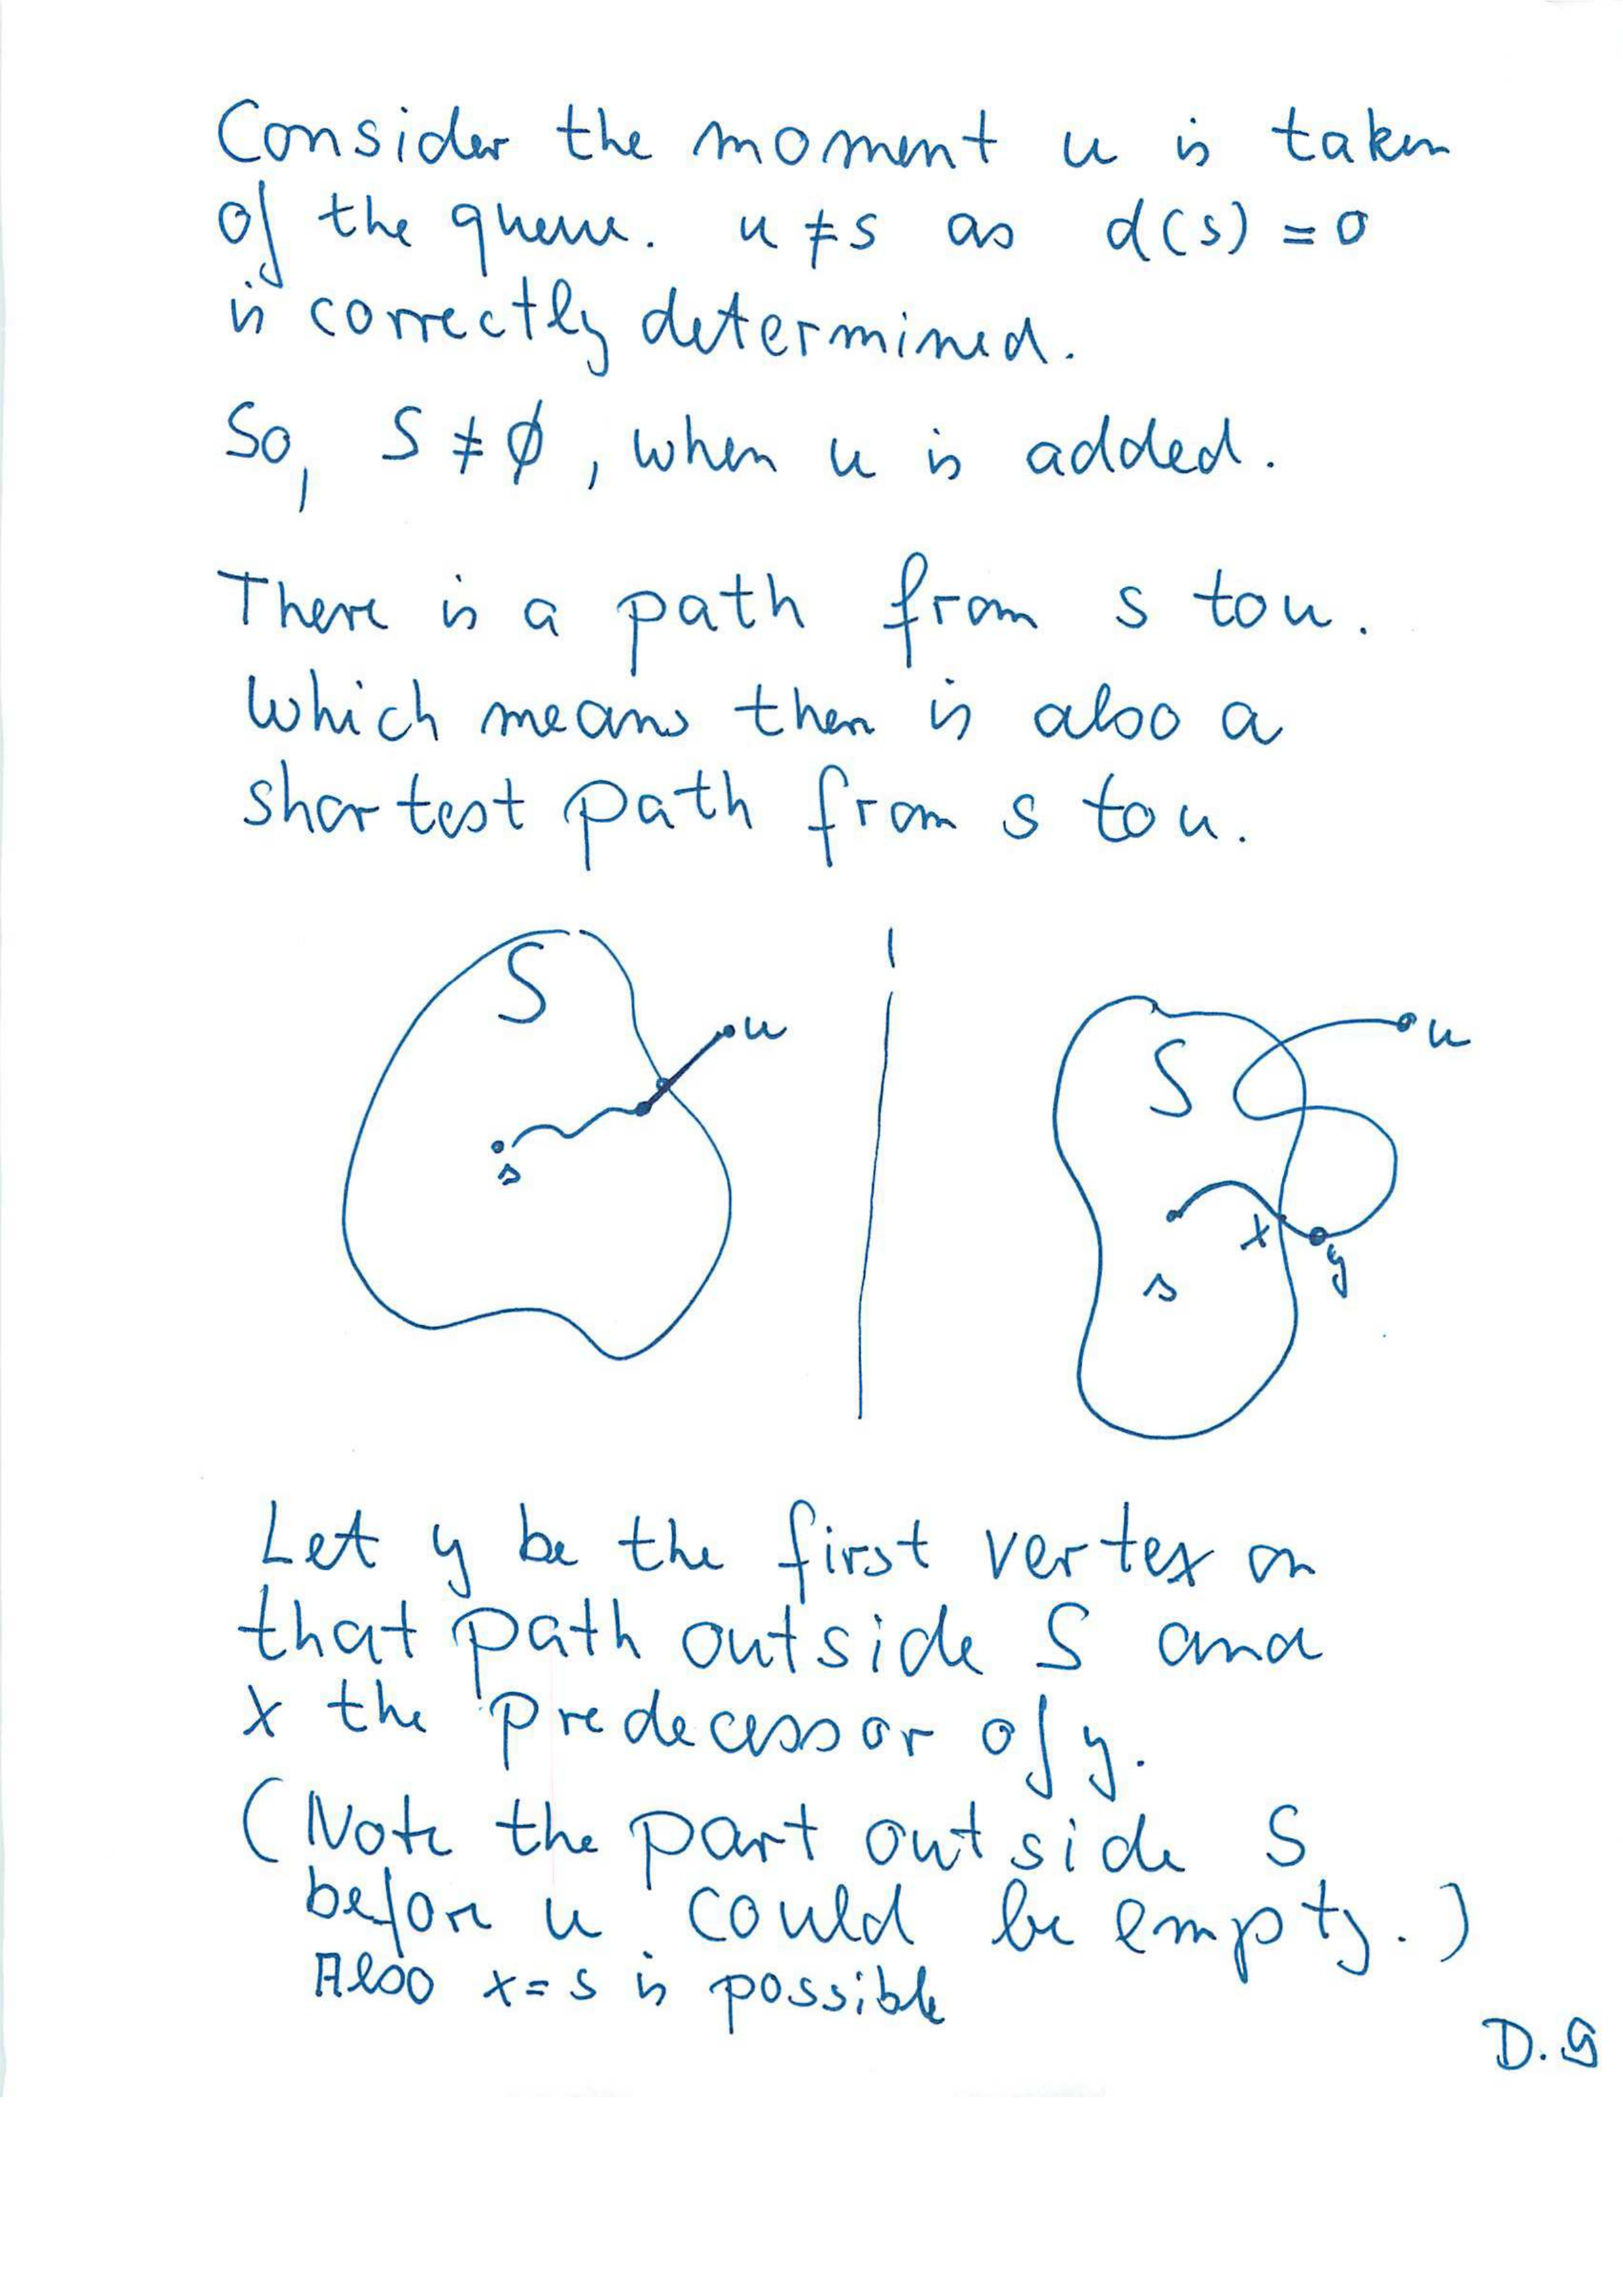 Consider the moment u is taken
of the queue. u ≠ s as d(s) = 0
is correctly determined.
So, S ≠ ∅, when u is added.
There is a path from s to u.
Which means there is also a
shortest path from s to u.
S
u
s
S
u
x
y
s
Let y be the first vertex on
that path outside S and
x the predecessor of y.
(Note the part outside S
before u could be empty.)
Also x = s is possible
D.9